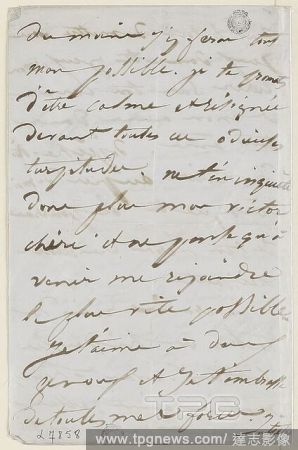 Du moins j'y ferai tous
mon possible. je te promets
d'être calme et résignée
devant toutes ces odieuses
turpitudes. ne t'en inquiète
donc plus mon victor
chéri et ne pense qu'à
venir me rejoindre
le plus vite possible
Je t'aime à deux
genoux et je t'embrasse
de toutes mes forces.
L7858
TPG
www.tpgnews.com / 達志影像